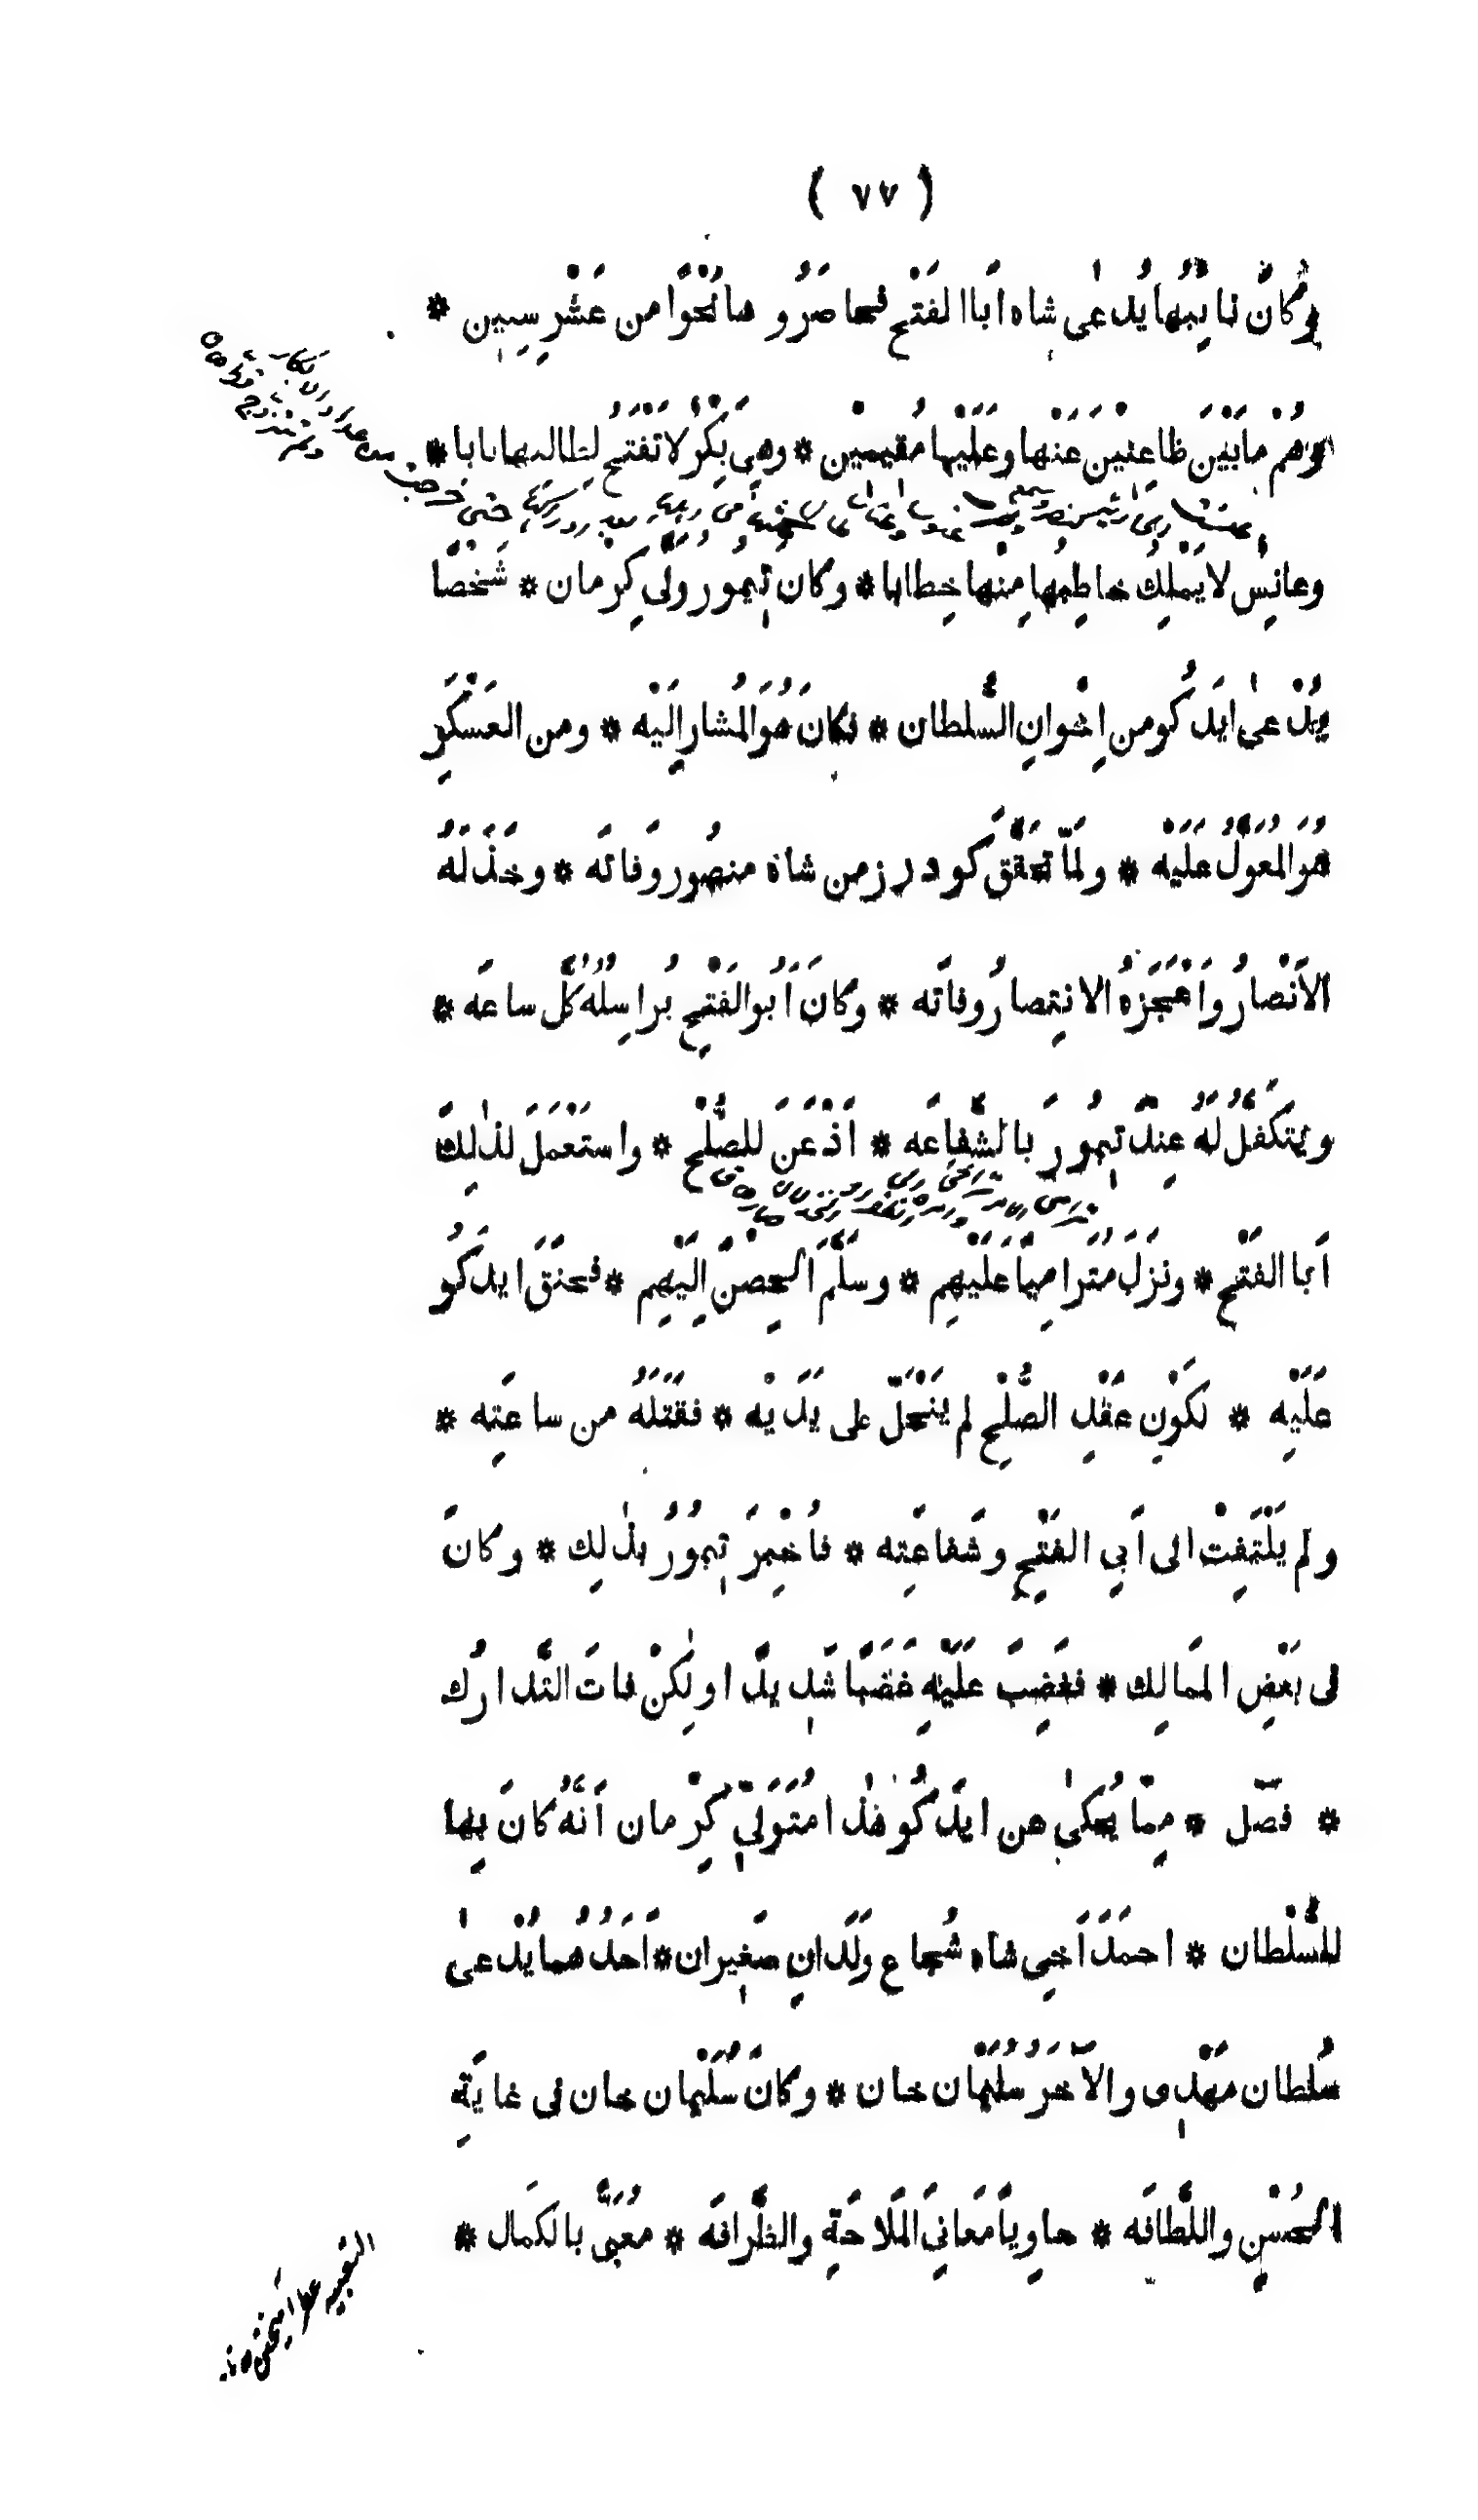 ( ٧٧ )
وكانَ نايِبُها يُدعٰى شاه اَبَا الفَتْح فحاصَرُوها نَحْوًا من عَشْرِ سِنين *
وهُمْ مابَيْنَ ظاعِنِيْنَ عَنْها وعَلَيْها مُقيمِيْن * وهِىَ بِكْرٌ لا تَفْتَحُ لِطالبها بابا *
وعانِسٌ لا يَمْلِكُ خاطِبُها مِنْها خِطابا * وكانَ تِيمُور ولّى كِرْمان * شَخْصًا
يُدْعىٰ ايدَكُو من اِخْوانِ السُّلطان * فكانَ هُوَ المُشارَ اِلَيْه * ومن العَسْكَرِ
هُوَ المُعَوَّلُ عَلَيْه * ولمّا تحَقَّقَ كودرز من شاه منصُور وفاتَه * وخَذَلَهُ
الاَنْصارُ واَعْجَزَهُ الانتِصارُ وفاتَه * وكانَ اَبُو الفَتْحِ يُراسِلُهُ كُلَّ ساعَه *
ويتَكَفَّلُ لَهُ عِنْدَ تِيمُورَ بالشَّفاعَه * اَذْعَنَ للصُّلْحِ * واستَعْمَلَ لذٰلِكَ
اَبا الفَتْحِ * ونزَلَ مُتَرامِيًا عَلَيْهِم * وسلَّمَ الحِصْنَ اِلَيْهِم * فحنَقَ ايدَكُو
عَلَيْهِ * لكَوْنِ عَقْدِ الصُّلْحِ لم يَنْحَلّ على يَدَيْه * فقَتَلَهُ من ساعَتِه *
ولم يَلْتَفِتْ الى اَبِى الفَتْحِ وشَفاعَتِه * فاُخْبِرَ تِيمُورُ بذٰلِك * وكانَ
فى بَعْضِ المَمالِك * فغَضِبَ عَلَيْهِ غَضَبًا شَدِيدًا ولٰكِنْ فاتَ التَّدارُك
* فصل * مِمّا يُحكىٰ عن ايدَكُو هٰذا مُتَوَلّىِ كِرْمان اَنَّهُ كانَ بِها
للسُّلْطان * احمَدَ اَخِى شاه شُجاع ولَدانِ صَغِيران * اَحَدُهُما يُدْعىٰ
سُلطان مَهْدِى والآخَرُ سُلَيْمان خان * وكانَ سُلَيْمان خان فى غايَةِ
الحُسْنِ واللَّطافَه * حاوِيًا مَعانِىَ المَلاحَةِ والظَّرافَه * مُعَبًّى بالكَمال *